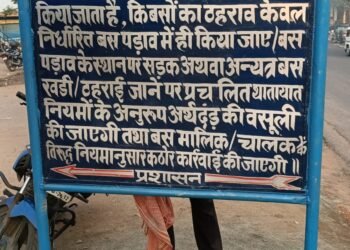 किया जाता है, कि बसों का ठहराव केवल
निर्धारित बस पड़ाव में ही किया जाए/बस
पड़ाव के स्थान पर सड़क अथवा अन्यत्र बस
खडी/ठहराई जाने पर प्रचलित यातायात
नियमों के अनुरूप अर्थदंड की वसूली
की जाएगी तथा बस मालिक/चालक के
विरुद्ध नियमानुसार कठोर कार्रवाई की जाएगी॥
प्रशासन